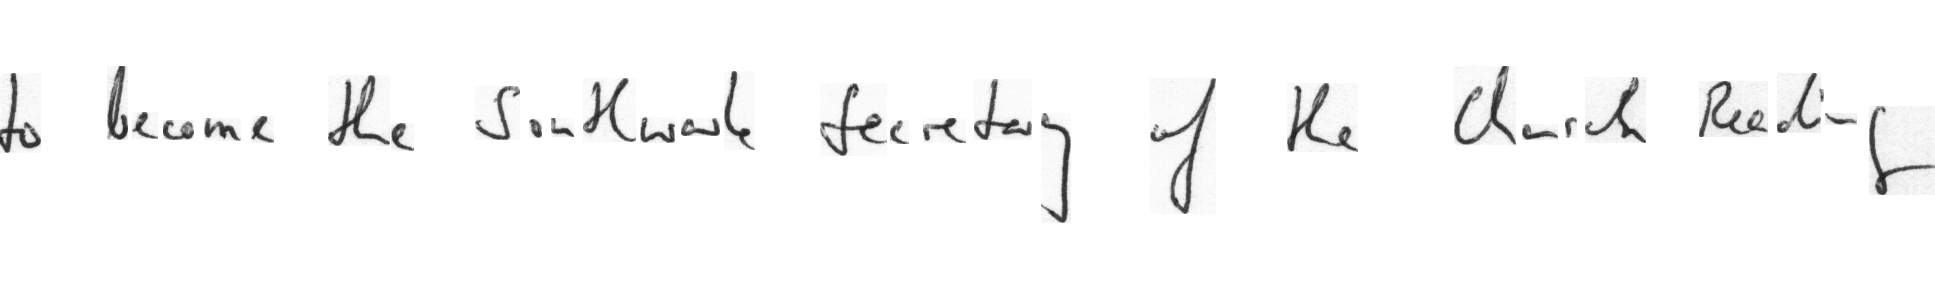 to become the Southwark Secretary of the Church Reading